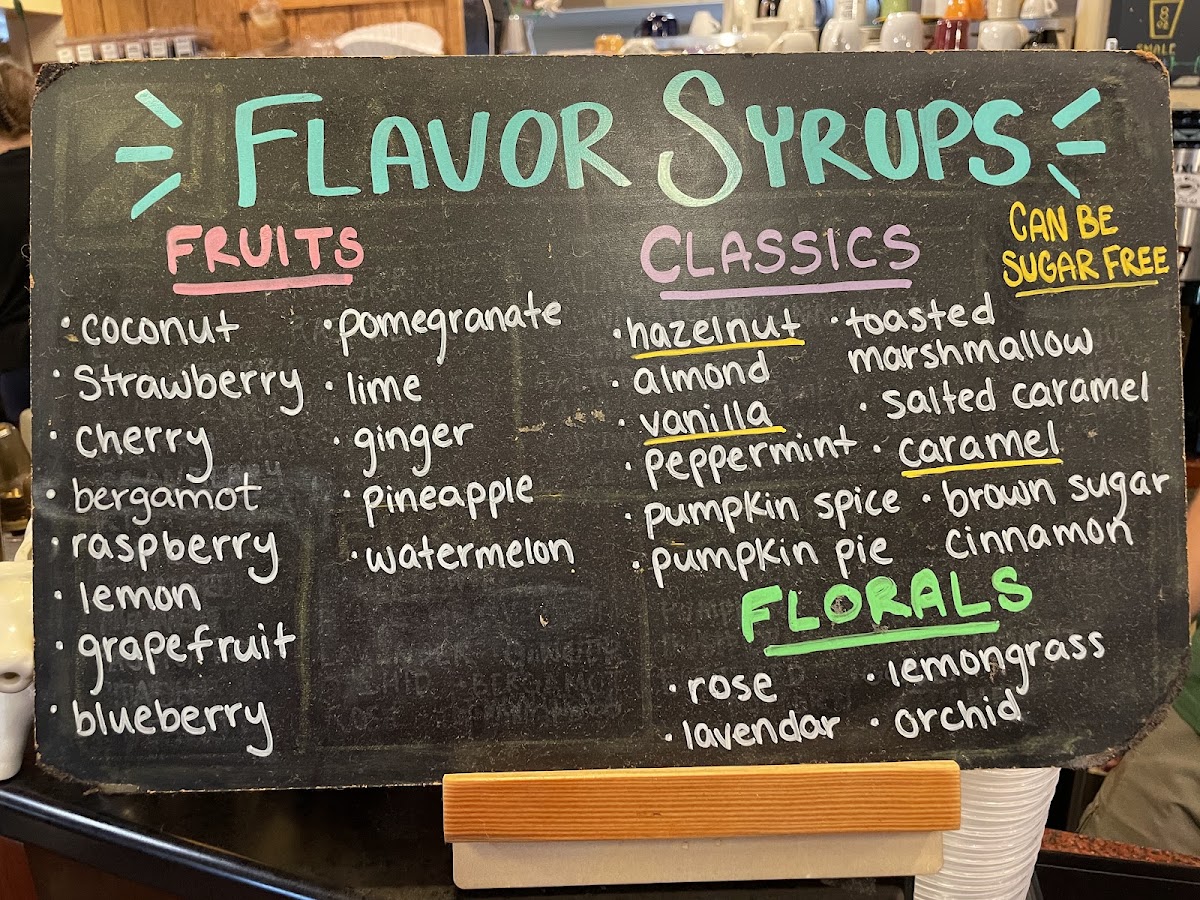 FLAVOR SYRUPS
FRUITS
• coconut
• strawberry
• cherry
• bergamot
• raspberry
• lemon
• grapefruit
• blueberry
• pomegranate
• lime
• ginger
• pineapple
• watermelon
CLASSICS
CAN BE
SUGAR FREE
• hazelnut
• almond
• vanilla
• peppermint
• pumpkin spice
• pumpkin pie
• toasted
marshmallow
• salted caramel
• caramel
• brown sugar
cinnamon
FLORALS
• rose
• lavendar
• lemongrass
• orchid